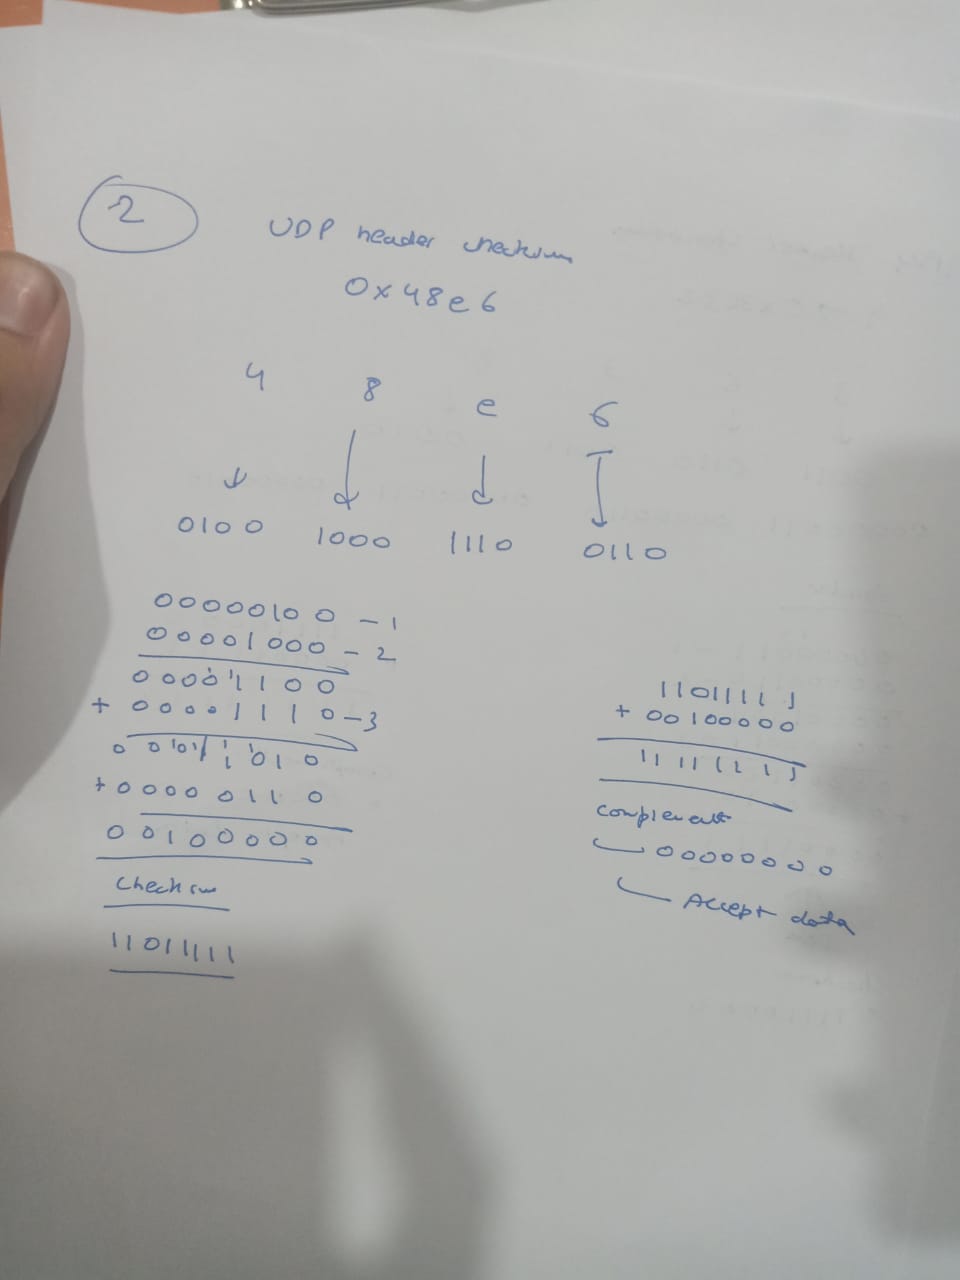 2
UDP header checksum
0x48e6
4 8 e 6
0100 1000 1110 0110
00000100 - 1
00001000 - 2
00001100
+ 00001110 - 3
00011010
+ 00000110
00100000
Checksum
11011111
11011111
+ 00100000
11111111
Complement
00000000
Accept data